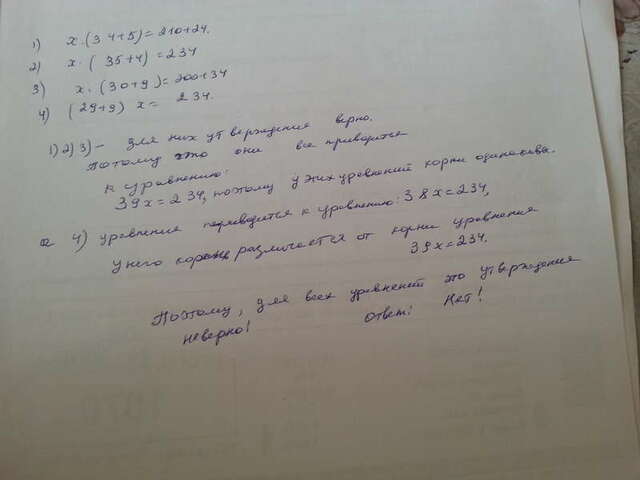 1) x·(34+5)=210+24.
2) x·(35+4)=234
3) x·(30+9)=200+34
4) (29+9) x= 234.
1)2)3)– для них утверждение верно.
Потому что они все приводятся
к уравнению:
39x=234, поэтому у этих уравнений корни одинаковы.
4) уравнение приводится к уравнению: 38x=234,
у него корень различается от корни уравнения
39x=234.
Поэтому, для всех уравнений это утверждение
неверно! Ответ! Нет!